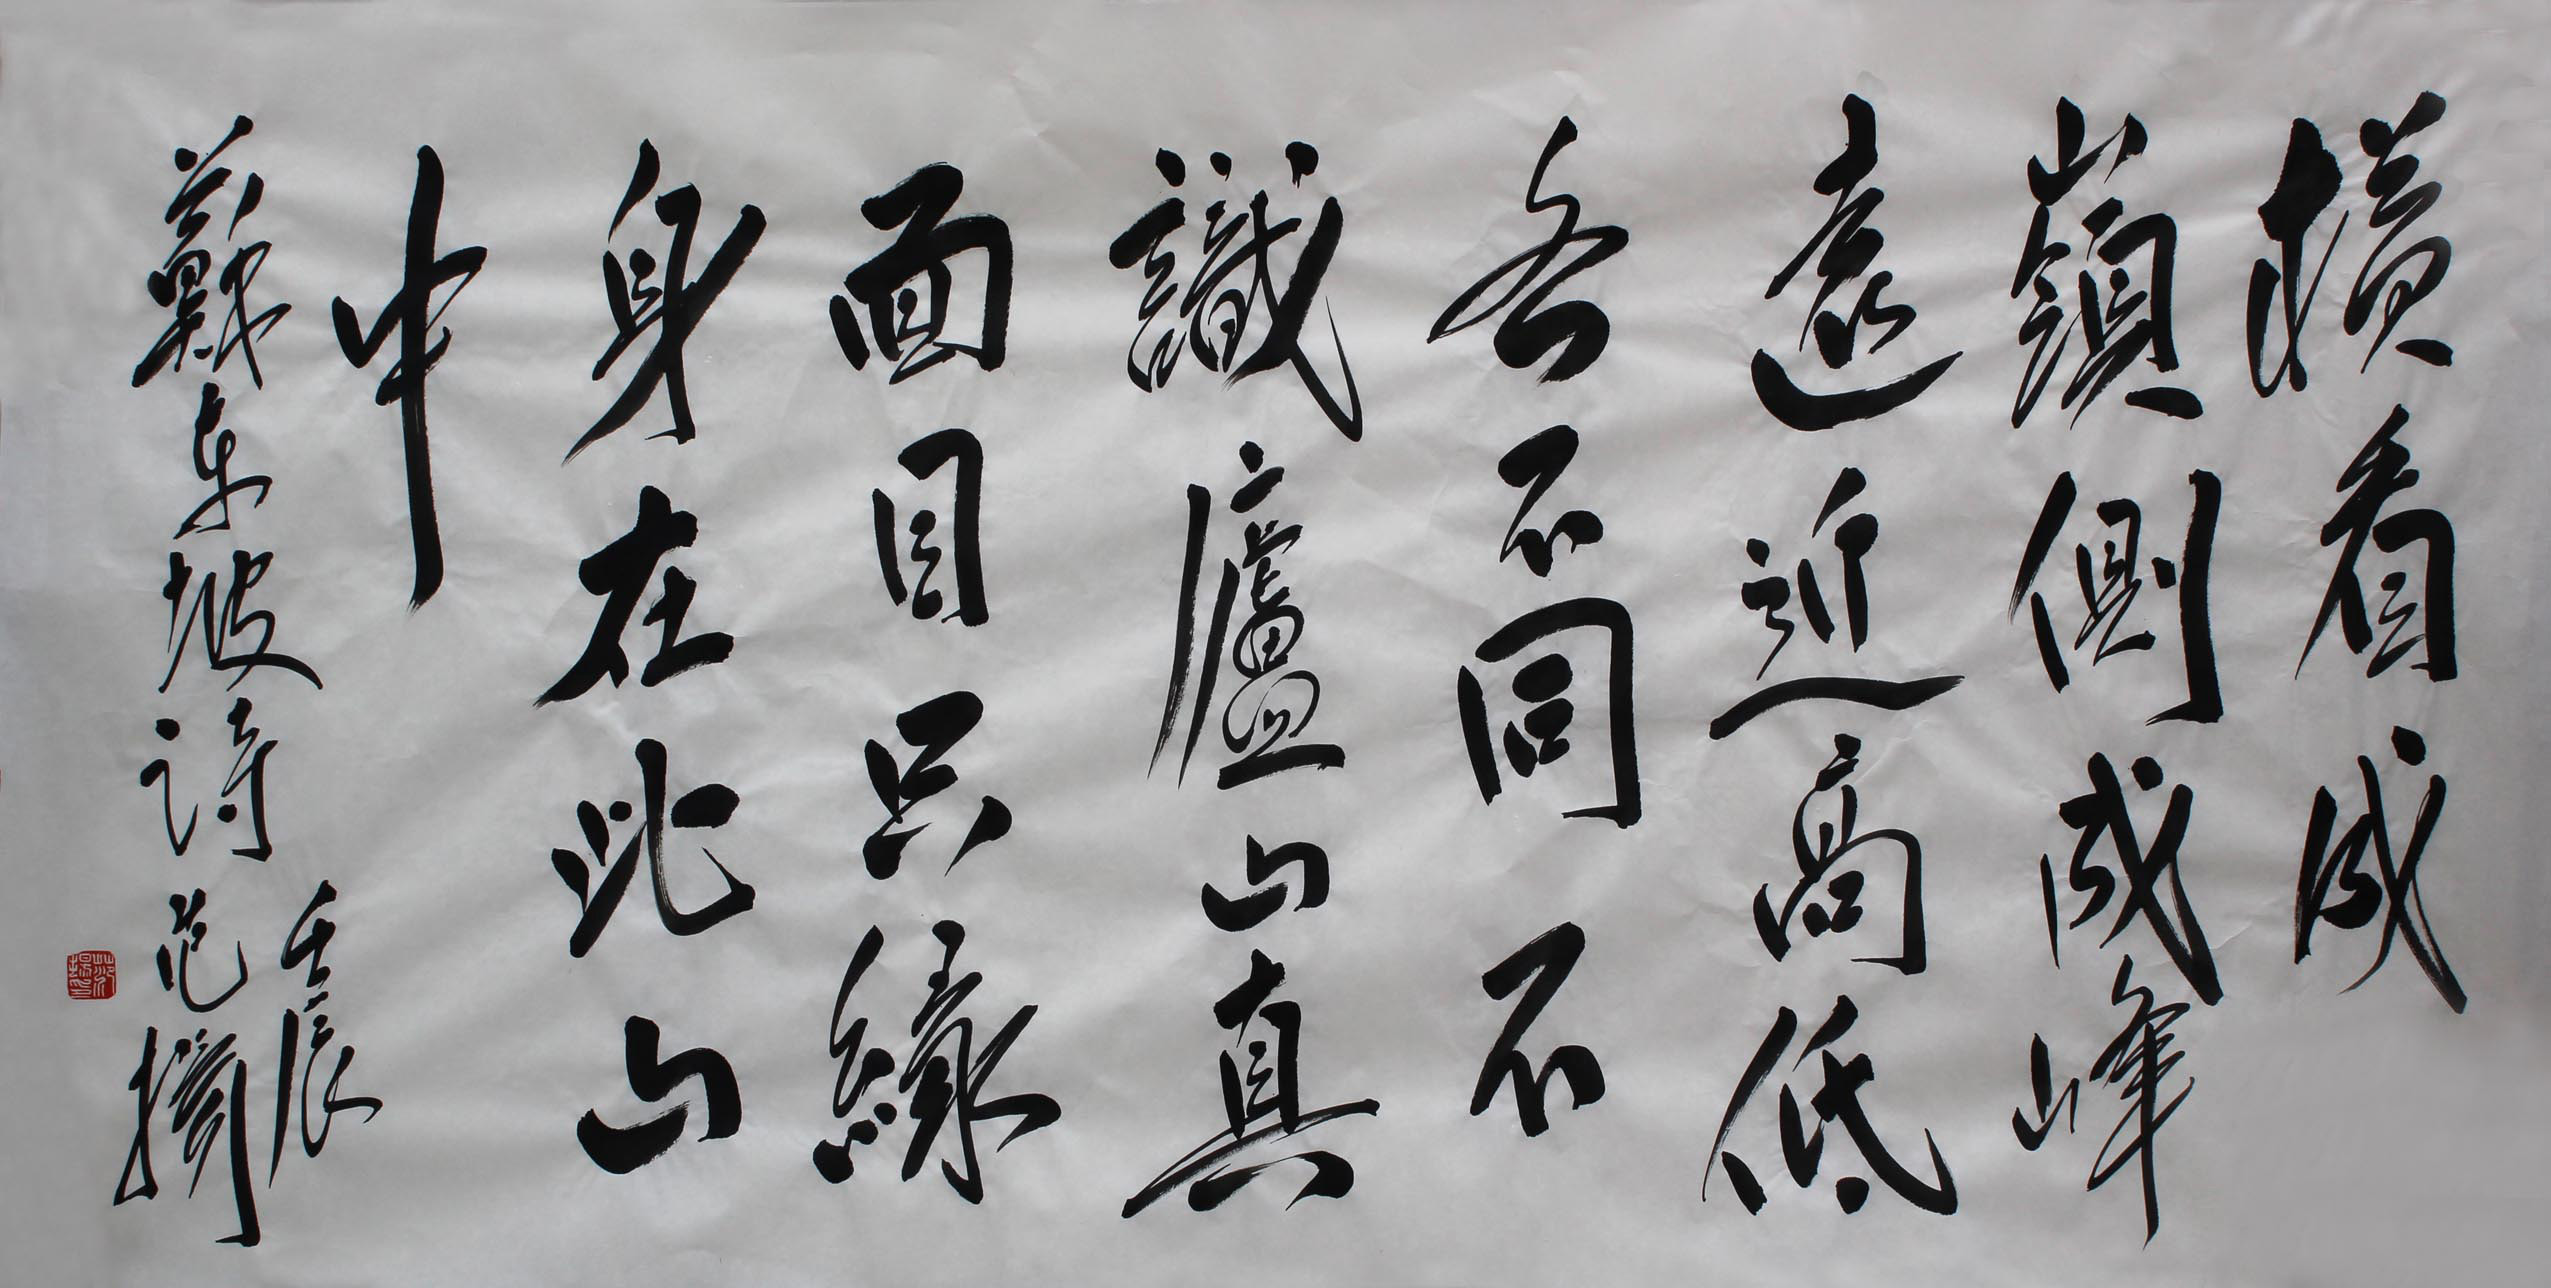 橫看成
嶺側成峰
遠近高低
各不同不
識廬山真
面目只緣
身在此山
中
蘇東坡詩
壬辰
范揚